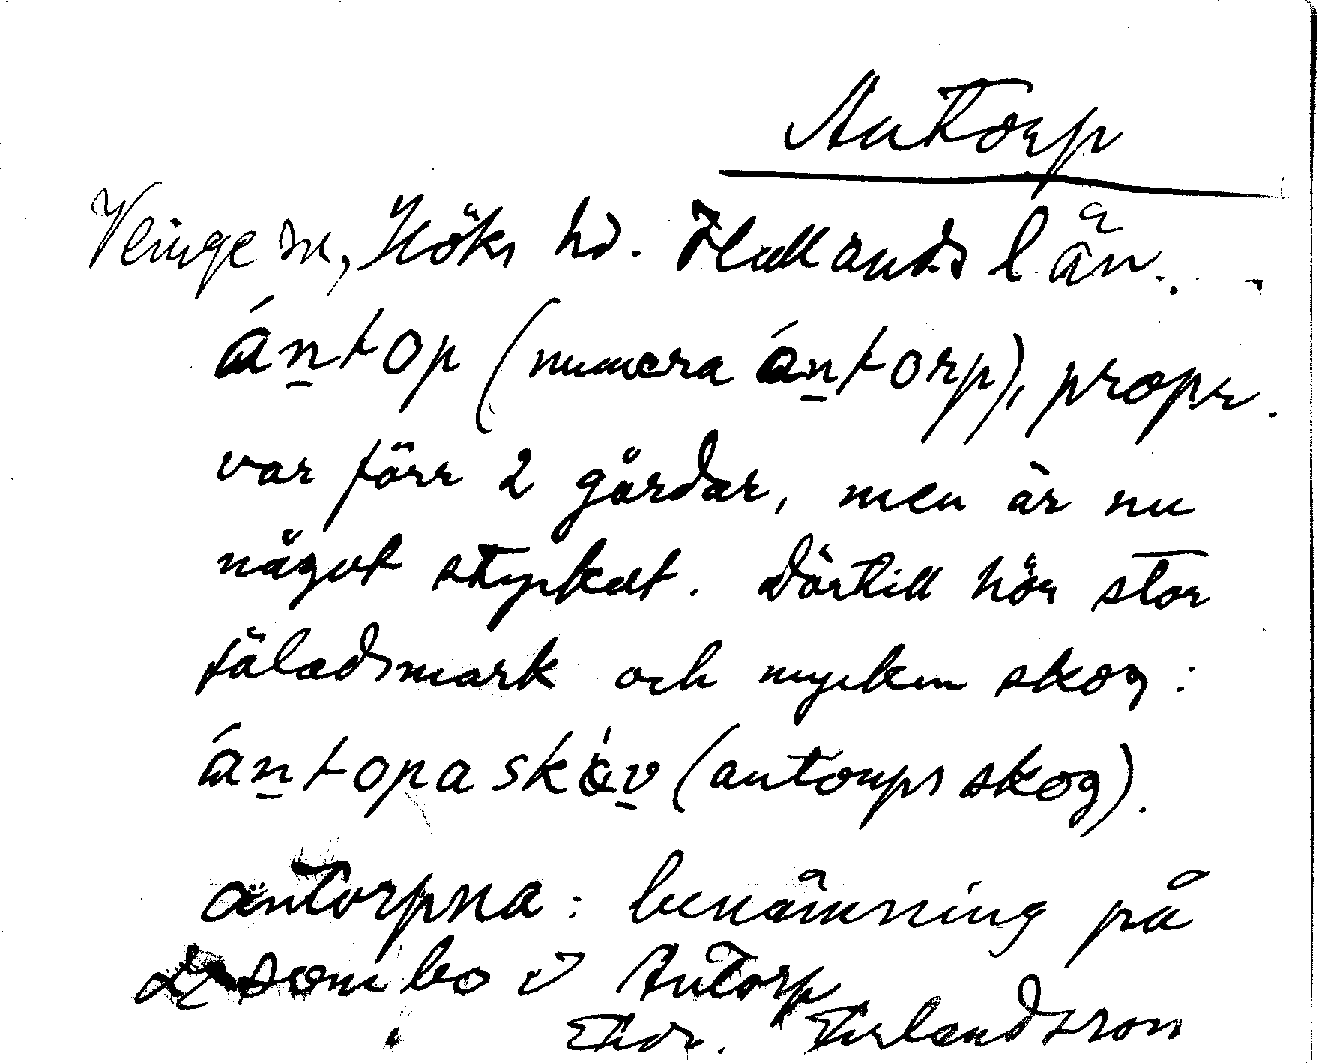 Antorp
Veinge sn, Höks hd. Hallands län.
ántop (numera ántorp), propr.
var förr 2 gårdar, men är nu
något styckat. Därtill hör stor
fäladsmark och mycken skog:
ántopa skóv (antorps skog).
antorpna: benämning på
de som bo i Antorp
Thor. Erlandsson